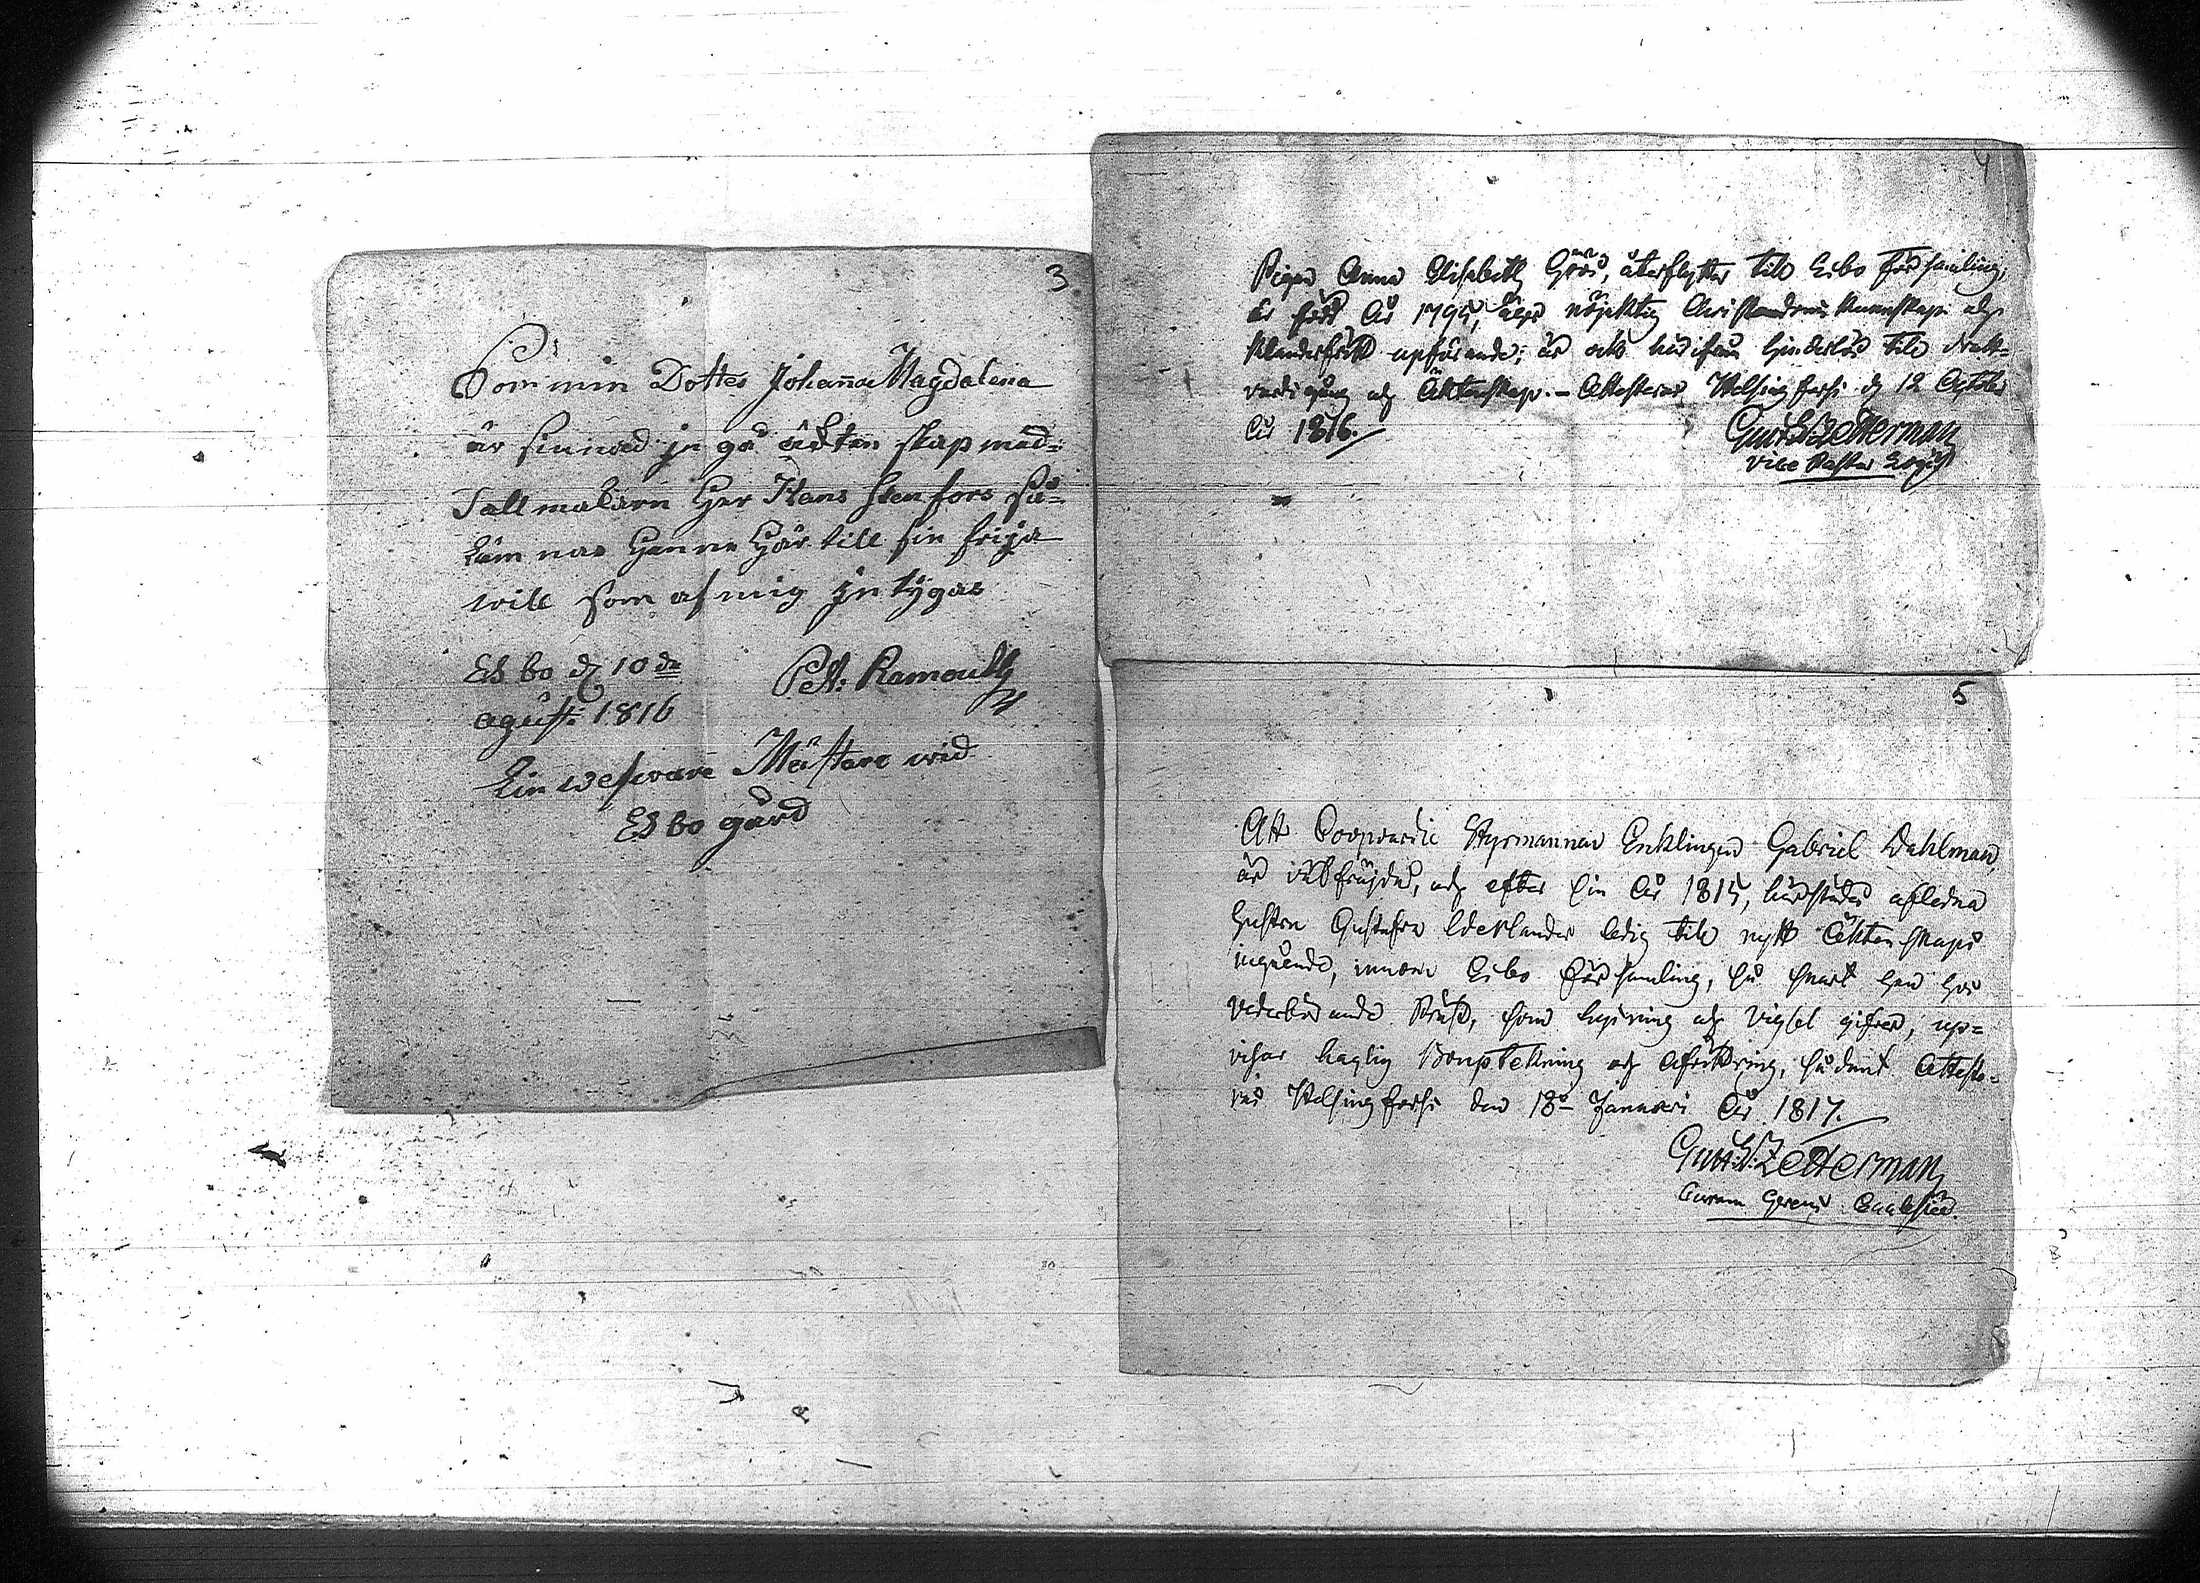 3
Som min Dotter Johanna Magdalena
är sinnad jn gå äkten skap med=
Sallmakarn Her Hans Stenfors så=
Läm nar Henne Här till sin frija
will som af mig jntÿgas
Esbo d 10de
agust: 1816
Pet: Ramoulth
Lin wefware Mästare wid
Esbo gård
4
Pigan Anna Elisabeth Grös, återflyttar till Esbo Församling,
är född År 1795, äger nöjaktig Christendoms kunnskap och
klanderfritt upförande; är ock härifrån hinderlös till
af Äktenskap. – Attesteras Helsingfors d 12 October
År 1816.
Gust: Zetterman
Vice Pastor
5
Att Coopvardie Styrmannen Enklingen Gabriel Dahlman,
är välfräjdad, och efter sin År 1815, härstädes afledna
Hustru Gustafva ledig till nytt Äktenskaps
ingående, innom Esbo Församling, så snart han hos
vederbörande Präst, som lysning och Vigsel gifver, up=
visar laglig Bouptekning och Afvittring, sådant Atteste=
ras Helsingfors den 18de Januari År 1817.
Gust: Zetterman
Curam Gerens Ecclesiæ.